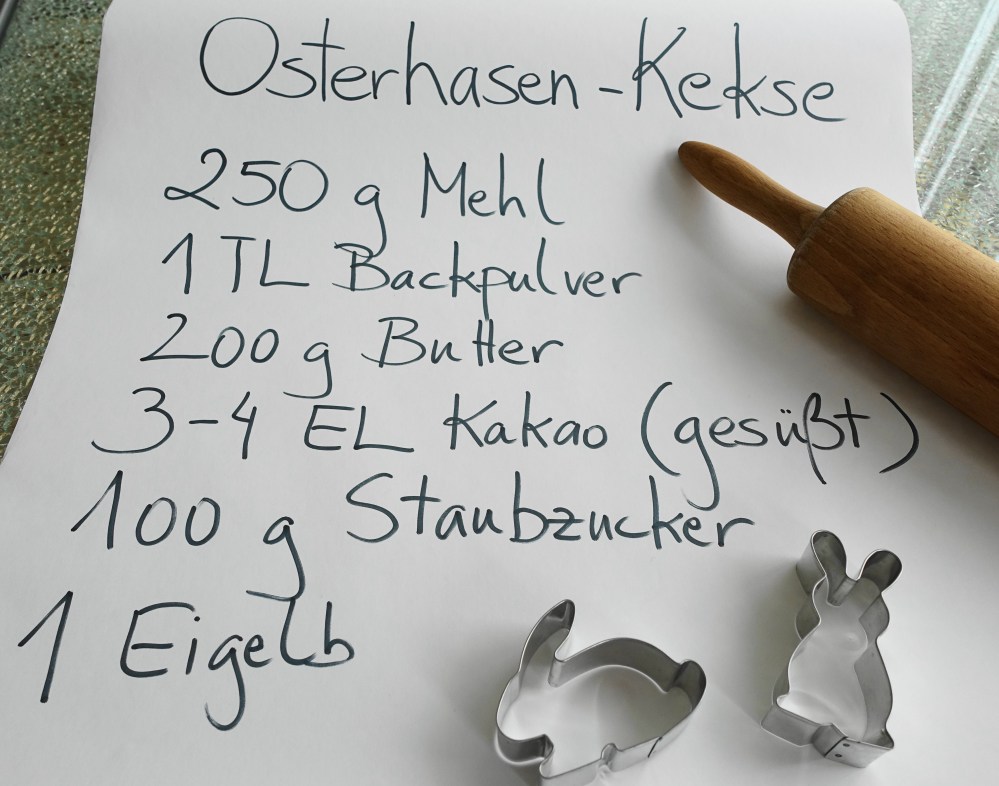 Osterhasen-Kekse
250 g Mehl
1 TL Backpulver
200 g Butter
3-4 EL Kakao (gesüßt)
100 g Staubzucker
1 Eigelb